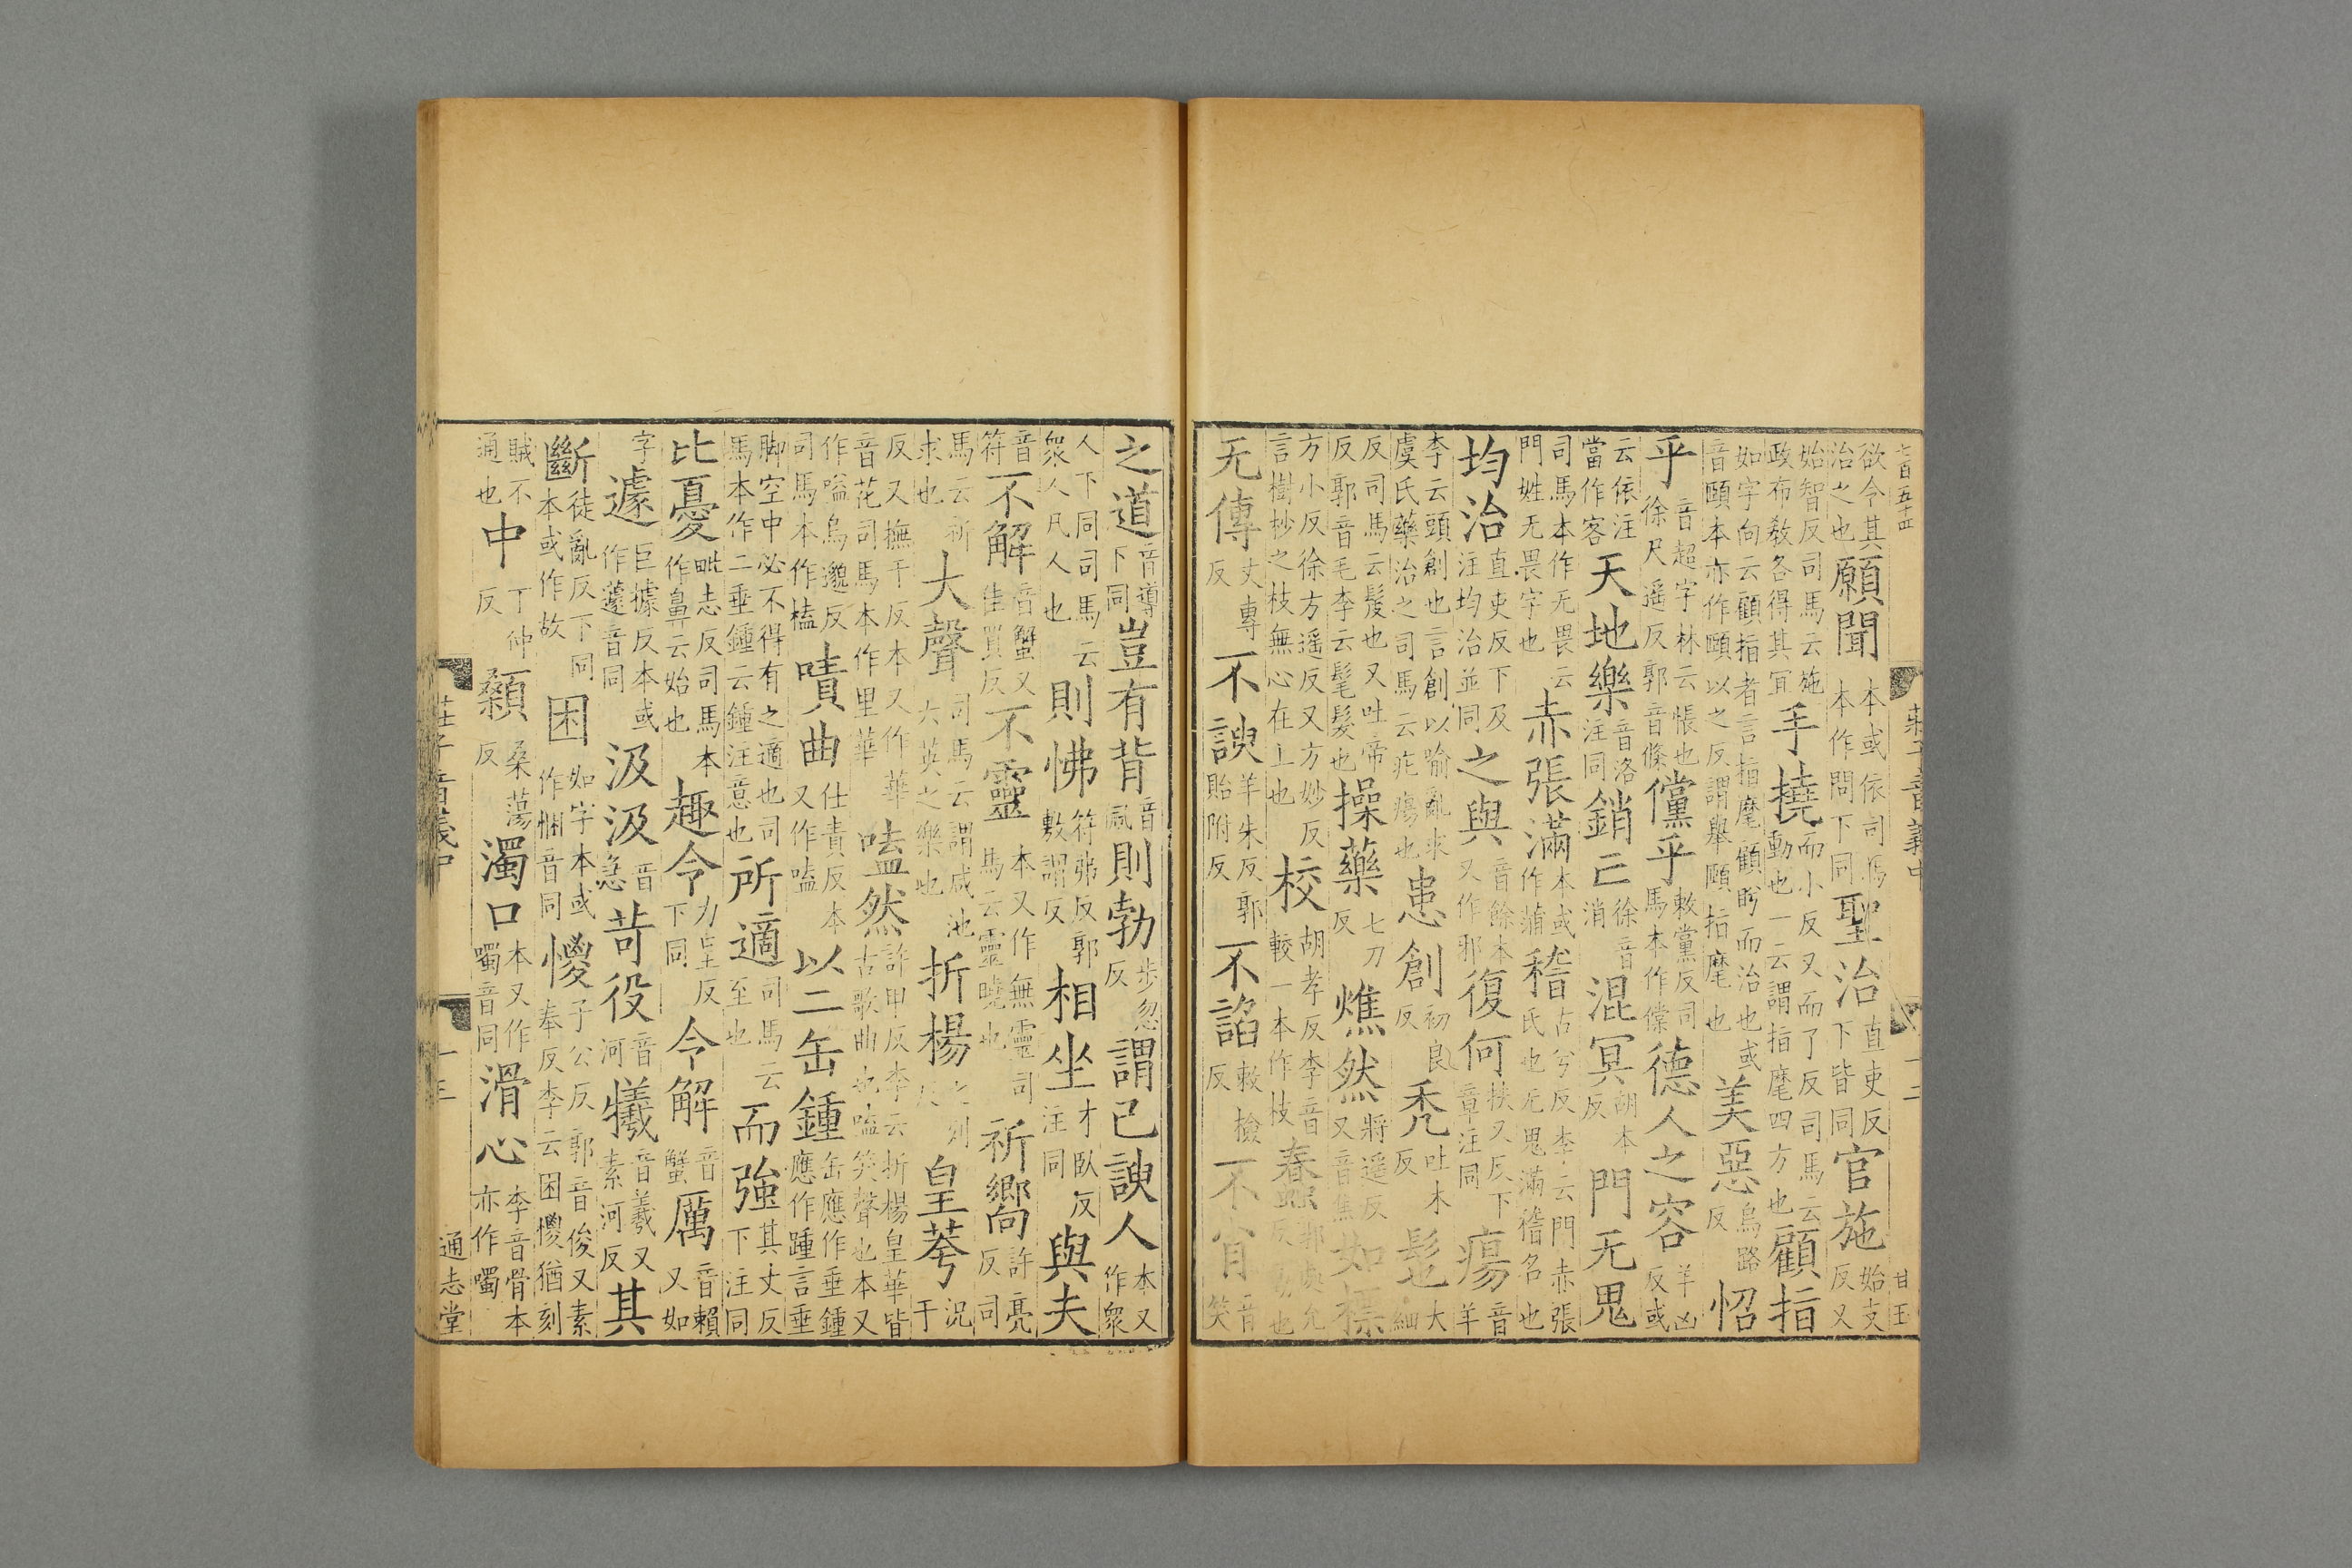 七百五十四 莊子音義中 十二 甘玉
欲令其治之也願聞本或依司馬本作問下同聖治直吏反下皆同官施始支反又
始智反司馬云施政布教各得其冝手撓而小反又而了反司馬云動也一云謂指麾四方也顧指
如字向云顧指者言指麾顧眄而治也或音頤本亦作頤以之反謂舉頤指麾也美惡烏路反怊
乎音超字林云悵也徐尺遥反郭音條儻乎敕黨反司馬本作儻德人之容羊凶反或
云依注當作客天地樂音洛注同銷亡徐音消混冥胡本反門无鬼
司馬本作无畏云門姓无畏字也赤張滿本或作㒼稽古兮反李云門赤張氏也无鬼滿稽名也
均治直吏反下及注均治並同之與音餘本又作邪復何扶又反下章注同瘍音羊
李云頭創也言創以喻亂求虞氏藥治之司馬云疕瘍也患創初良反禿吐木反髢大細
反司馬云髮也又吐帝反郭音毛李云髦髮也操藥七刀反燋然將遥反又音焦如標
方小反徐方遥反又方妙反言樹杪之枝無心在上也校胡孝反李音較一本作枝蠢郭處允反動也
无傳丈專反不諛羊朱反郭貽附反不諂敕檢反不肖音笑
之道音導下同豈有背音佩則勃步忽反謂已諛人本又作衆
人下同司馬云衆人凡人也則怫符弗反郭敷謂反相坐才臥反注同與夫
音符不解音蟹又佳買反不靈本又作無靈司馬云靈曉也祈嚮許亮反司
馬云祈求也大聲司馬云謂咸池六英之樂也折楊之列反皇荂況于
反又撫于反本又作華音花司馬本作里華嗑然許甲反李云折楊皇華皆古歌曲也嗑笑聲也本又
作嗌烏邈反司馬本作榼嘖曲仕責反本又作嗑以二缶鍾缶應作垂鍾應作踵言垂
脚空中必不得有之適也司馬本作二垂鍾云鍾注意也所適司馬云至也而強其丈反下注同
比憂毗志反司馬本作鼻云始也趣令力呈反下同令解音蟹厲音賴又如
字遽巨據反本或作蘧音同汲汲音急苛役音河犧音羲又素河反其
斷徒亂反下同本或作故困如字本或作悃音同惾子公反郭音俊又素奉反李云困惾猶刻
賊不通也中丁仲反顙桑蕩反濁口本又作噣音同滑心李音骨本亦作噣
莊子音義中 十三 通志堂